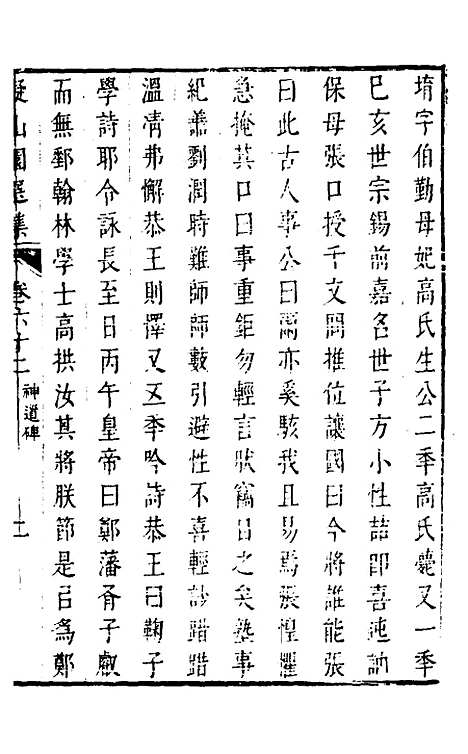 堉字伯勤母妃高氏生公二季高氏薨又一季
巳亥世宗錫前嘉名世子方小性喆卽喜迍訥
保母張口授千文問推位讓國曰今將誰能張
曰此古人事公曰爾亦奚駭我且易焉張惶懼
急掩其口曰事重鉅勿輕言狀竊目之矣塾事
紀善劉潤時難師師數引避性不喜輕諓踖踖
溫凊弗懈恭王則懌又五季吟詩恭王曰鞠子
學詩耶令詠長至日丙午皇帝曰鄭藩胥子獻
而無郵翰林學士高拱汝其將朕節是㠯爲鄭
擬山園選集 卷六十二 神道碑